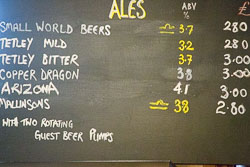 ALES ABV % £
SMALL WORLD BEERS 3.7 280
TETLEY MILD 3.2 280
TETLEY BITTER 3.7 3.00
COPPER DRAGON 3.8 3.00
ARIZONA 4.1 3.00
MALLINSONS 3.8 2.80
WITH TWO ROTATING
GUEST BEER PUMPS